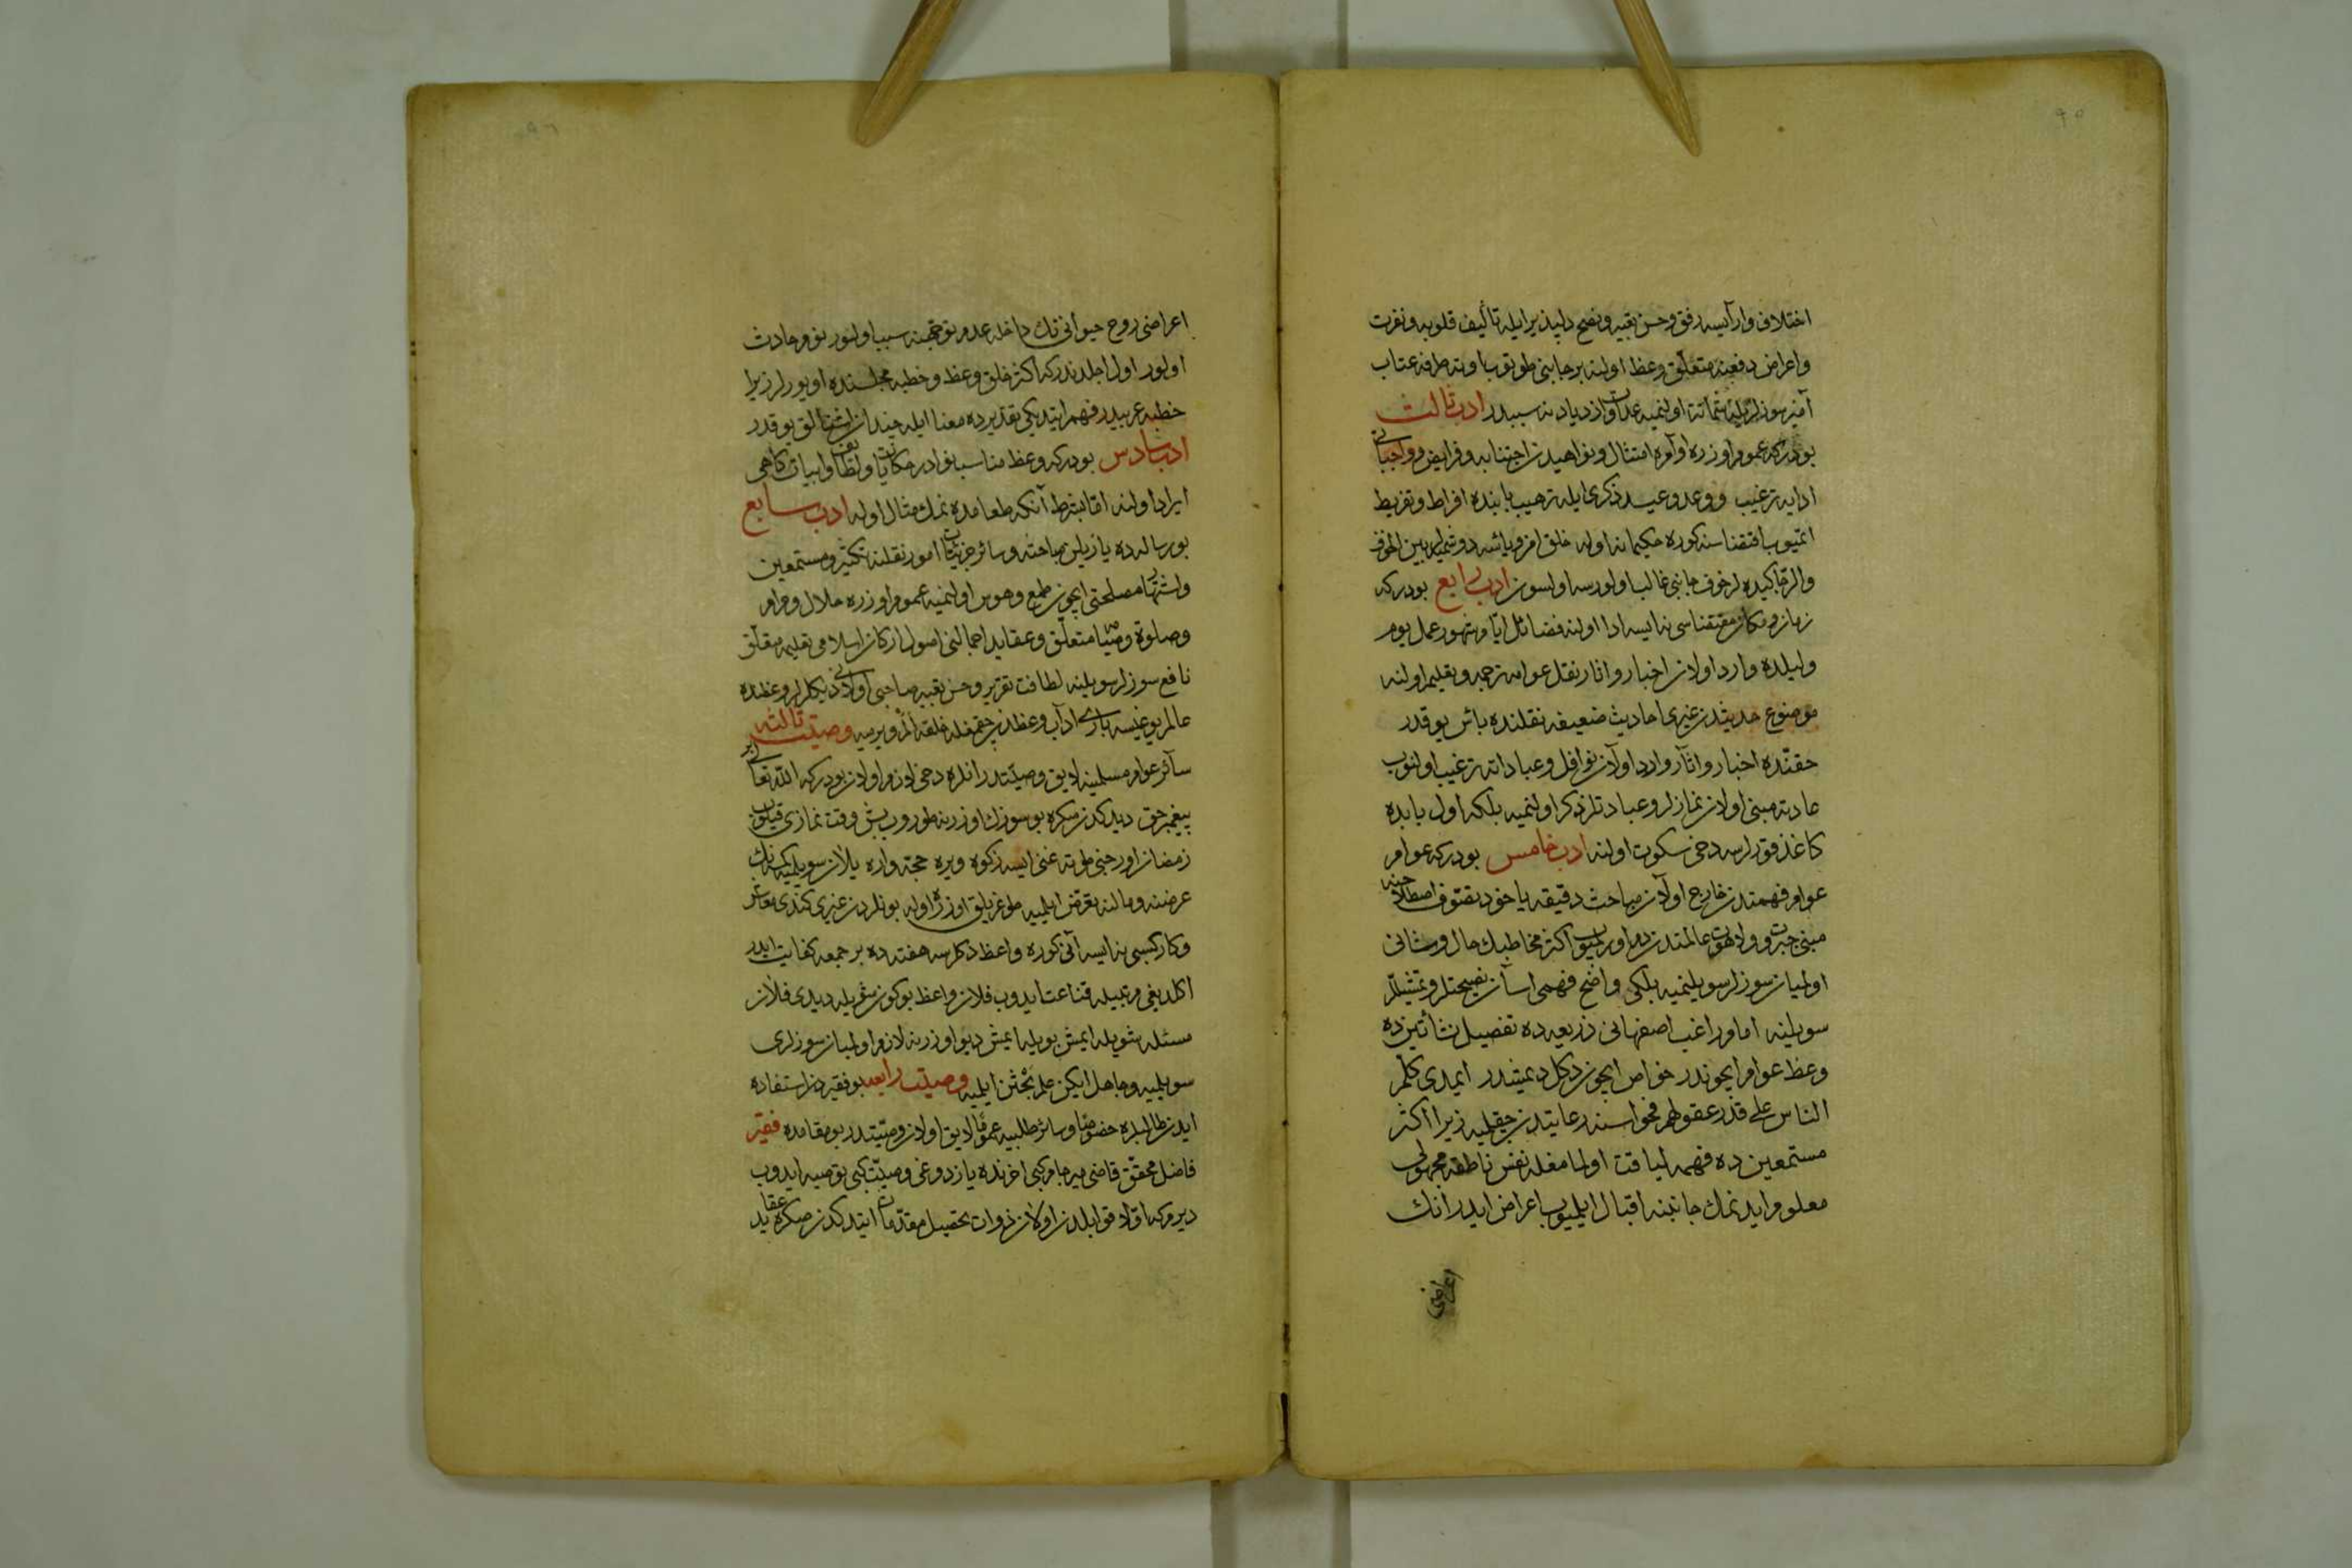 اختلاف وار ايسه رفق وحسن تعبير ونصح دلپذير ايله تأليف قلوبه ونفرت
واعراض دفعنه متعلق وعظ اولنه بر جانبى طوتوب اوته طرفه عتاب
آميز سوزلر ايله شماتة اولنميه عداوت ازديادنه سببدر ادب ثالث
بودركه عموم اوزره اوامره امتثال ونواهيدن اجتنابه وفرايض وواجباتى
ادايه ترغيب ووعد وعيد ذكرى ايله ترهيب بابنده افراط وتفريط
اتميوب اقتضاسنه كوره حكيمانه اوله خلق امن وياسه دوشميلر بين الخوف
والرجا كيده لر خوف جانبى غالب اولورسه اولسون ادب رابع بودركه
زمان ومكان مقتضاسى نه ايسه ادا اولنه فضائل ايام وشهور عمل يوم
وليلده وارد اولان اخبار واثار نقل عوامه ترجمه وتعليم اولنه
موضوع حديثدن غيرى احاديث ضعيفه نقلنده باس يوقدر
حقنده اخبار واثار وارد اولان نوافل وعباداته ترغيب اولنوب
عادته مبنى اولان نمازلر وعبادتلر ذكر اولنميه بلكه اول بابده
كاغد قورلرسه دخى سكوت اولنه ادب خامس بودركه عوام
عوام فهمندن خارج اولان مباحث دقيقه يا خود تصوف اصطلاحنه
مبنى جبروت ولاهوت عالمندن دم اورميوب اكثر مخاطبك حال وشانى
اولميان سوزلر سويلنميه بلكى واضح فهمى اسان نصيحتلر وتمثيللر
سويلنه امام راغب اصفهانى ذريعه ده تفصيل نشأتين ده
وعظ عوام ايچوندر خواص ايچون دكل ديمشدر ايمدى كلم
الناس على قدر عقولهم فحواسنه رعايتدن چقلميه زيرا اكثر
مستمعين ده فهمه لياقت اولمامغله نفس ناطقه مجهولى
معلوم ايدنمك جانبنه اقبال ايلميوب اعراض ايدر انك
اعراضى
اعراضى روح حيوانى نك داخله عدم توجهنه سبب اولنور نوم حادث
اولور اول اجلدندركه اكثر خلق وعظ وخطبه مجلسنده اويورلر زيرا
خطبه عربيدر فهم ايتديكى تقديرده معنا ايله چندان اشتغالى يوقدر
ادب سادس بودركه وعظ مناسب نوادر حكايات ولطائف وابيات كاهى
ايراد اولنه اما بشرط آنكه طعامده نمك مثال اوله ادب سابع
بو رساله ده يازيلن مباحثه وسائر جزئيات امور نقلنه تكثير ومستمعين
واشتهار مصلحتى ايچون طمع وهوس اولنميه عموم اوزره حلال وحرام
وصلوة وصيامه متعلق وعقايد اجمالنى اصول اركان اسلامى تعليمه متعلق
نافع سوزلر سويلنه لطافت تقرير وحسن تعبير صاحبى اولانى ديكلرلر وعظنده
عالم بوغيسه بارى اداب وعظدن چقمغله خلقه الم ويرميه وصيت ثالثه
سائر عوام مسلمينه لايق وصيتدر انلره دخى لازم اولان بودركه الله تعالى بر
پيغمبر حق ديدكدن صكره بو سوزك اوزرينه طوروب بش وقت نمازى قيلوب
رمضان اورجنى طوته غنى ايسه زكوة ويره حجه واره يلان سويلميه كمسه نك
عرضنه ومالنه تعرض ايلميه طوغريلق اوزره اوله بونلردن غيرى كندى معاش
وكار كسبى نه ايسه آنى كوره واعظ دكلرسه هفته ده بر جمعه كفايت ايدر
اكلديغى مرتبه ايله قناعت ايدوب فلان واعظ بوكون شويله ديدى فلان
مسئله شويله ايمش بويله ايمش ديو اوزرينه لازم اولميان سوزلرى
سويلميه وجاهل ايكن علم بحثن ايلميه وصيت رابعه بو فقيردن استفاده
ايدن طالبلره خصوصا وسائر طلبه يه عموما لايق اولان وصيتدر بو مقامده فقير
فاضل محقق قاضى مير جامع كبى اخرنده يازدوغى وصيت كبى توصيه ايدوب
ديرم كه اولا قوابلدن اولان ذوات تحصيل مقدمات ايتدكدن صكره عقايد